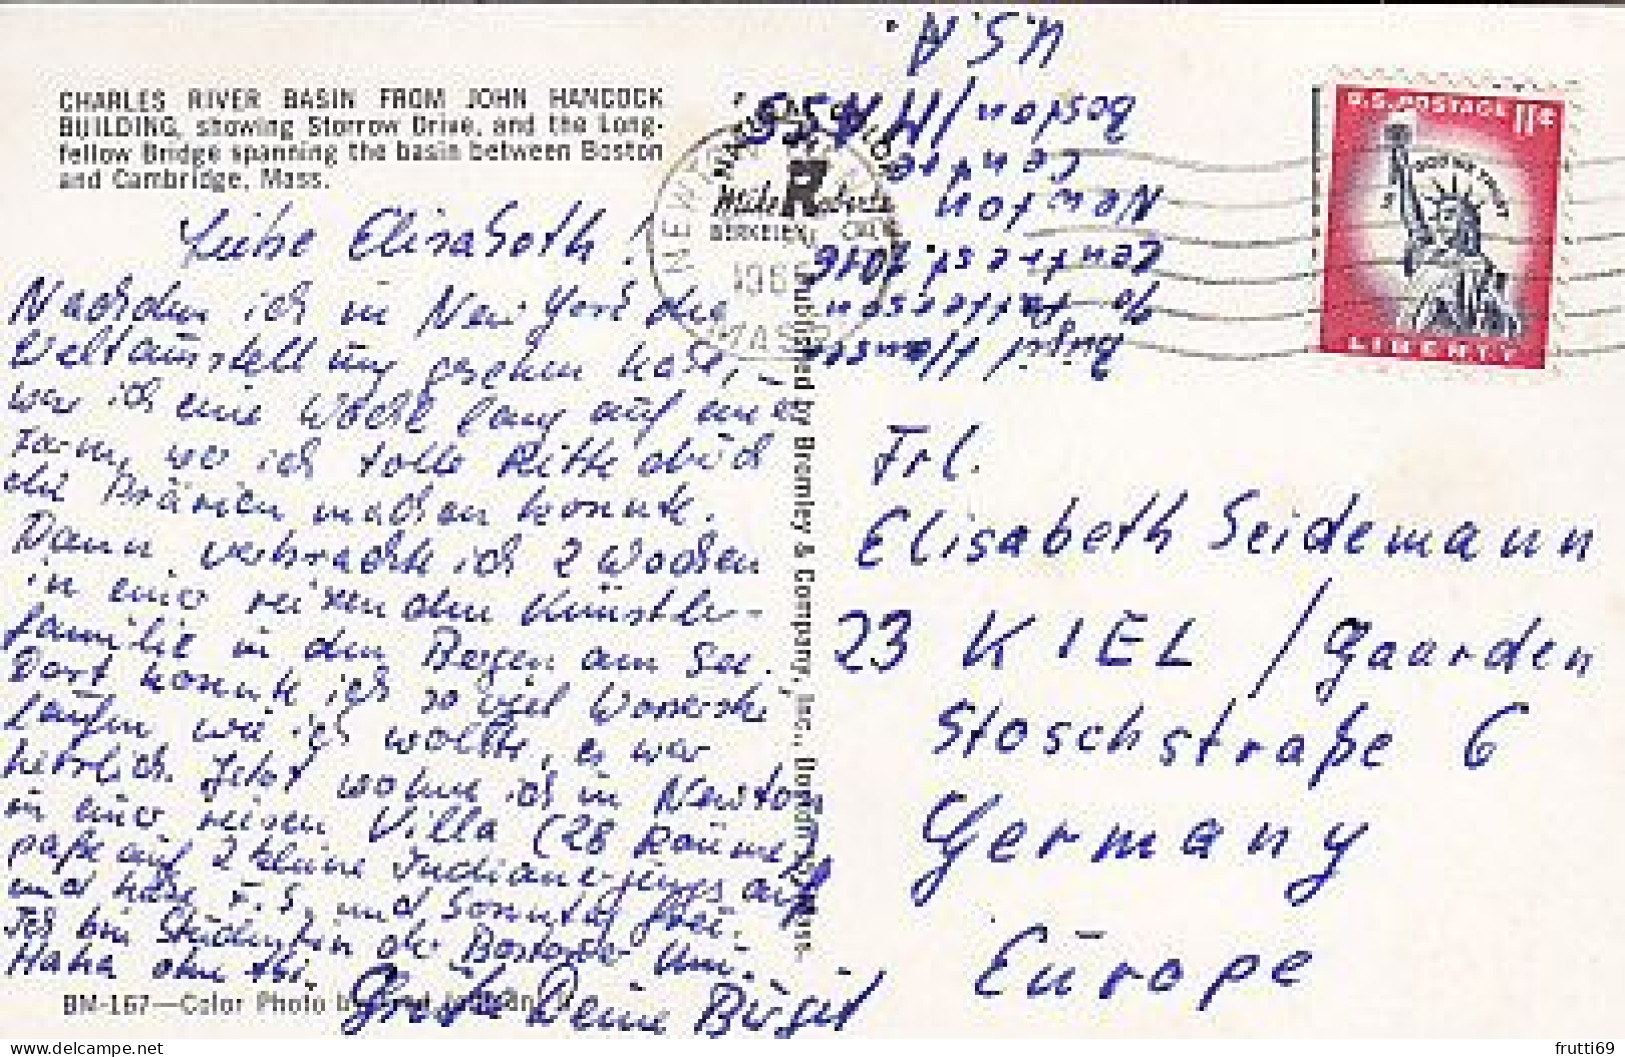 CHARLES RIVER BASIN FROM JOHN HANCOCK
BUILDING, showing Storrow Drive, and the Long-
fellow Bridge spanning the basin between Boston
and Cambridge, Mass.
Liebe Elisabeth!
Nachdem ich in New York die
Weltausstellung gesehen habe,
war ich eine Woche lang auf einer
Farm, wo ich tolle Ritte durch
die Prärien machen konnte.
Dann verbrachte ich 2 Wochen
in einer reizenden Künstler-
familie in den Bergen am See.
Dort konnte ich so viel Wasserski
laufen wie ich wollte, es war
herrlich. Jetzt wohne ich in Newton
in einer reisen Villa (28 Räume)
paße auf 2 kleine Indianerjungs auf
und habe F. S. und Sonntag frei.
Ich bin Studentin an der Bostoner Uni.
Haha ohne Abi.
Grüße Deine Birgit
BM-167—Color Photo by
Published by Bromley & Company, Inc., Mass.
U.S.A.
Boston/MASS
Centre
Newton
Centre St. 1016
c/o Patterson
Birgit
NEWTON
R
Mike Roberts
BERKELEY, CALIF
196
MASS
U.S. POSTAGE 11¢
IN GOD WE TRUST
LIBERTY
Frl.
Elisabeth Seidemann
23 KIEL / Gaarden
Stoschstraße 6
Germany
Europe
delcampe.net
frutti69